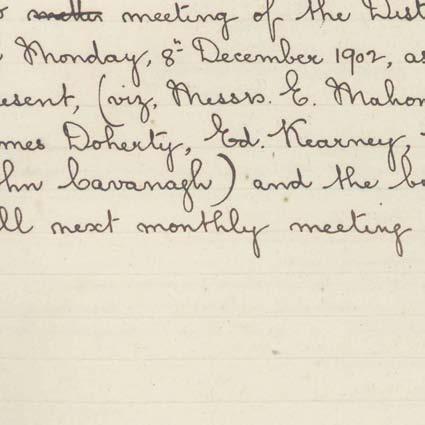 meeting of the Dist
Monday, 8th December 1902, as
esent, (viz, Messrs. E. Mahon
mes Doherty, Ed. Kearney,
hn Cavanagh) and the b
ll next monthly meeting